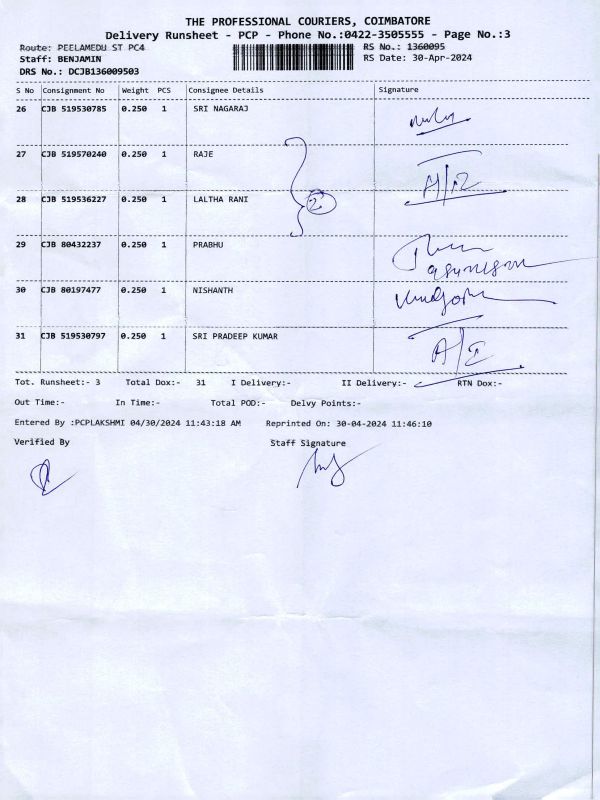 THE PROFESSIONAL COURIERS, COIMBATORE
Delivery Runsheet - PCP - Phone No.:0422-3505555 - Page No.:3
Route: PEELAMEDU ST PC4 RS No.: 1360095
Staff: BENJAMIN RS Date: 30-Apr-2024
DRS No.: DCJB136009503
S No Consignment No Weight PCS Consignee Details Signature
26 CJB 519530785 0.250 1 SRI NAGARAJ
27 CJB 519570240 0.250 1 RAJE
28 CJB 519536227 0.250 1 LALTHA RANI 2
29 CJB 80432237 0.250 1 PRABHU
30 CJB 80197477 0.250 1 NISHANTH
31 CJB 519530797 0.250 1 SRI PRADEEP KUMAR
Tot. Runsheet:- 3 Total Dox:- 31 I Delivery:- II Delivery:- RTN Dox:-
Out Time:- In Time:- Total POD:- Delvy Points:-
Entered By :PCPLAKSHMI 04/30/2024 11:43:18 AM Reprinted On: 30-04-2024 11:46:10
Verified By Staff Signature